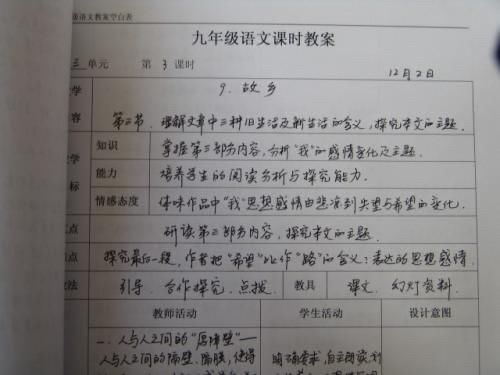 级语文教案空白表
九年级语文课时教案
三 单元 第 3 课时
12月2日
学 9. 故乡
容 第三节、理解文章中三种旧生活及新生活的含义，探究本文的主题.
学 知识 掌握第三部分内容，分析“我”的感情变化及主题.
能力 培养学生的阅读分析与探究能力.
标 情感态度 体味作品中“我”思想感情由悲凉到失望与希望的变化.
点 研读第三部分内容，探究本文的主题.
点 探究最后一段，作者把“希望”比作“路”的含义：表达的思想感情
法 引导、合作探究、点拨 教具 课文、幻灯资料.
教师活动 学生活动 设计意图
一、人与人之间的“厚障壁”——
人与人之间的隔壁、隔膜，使得
明确要求，自主朗读，划